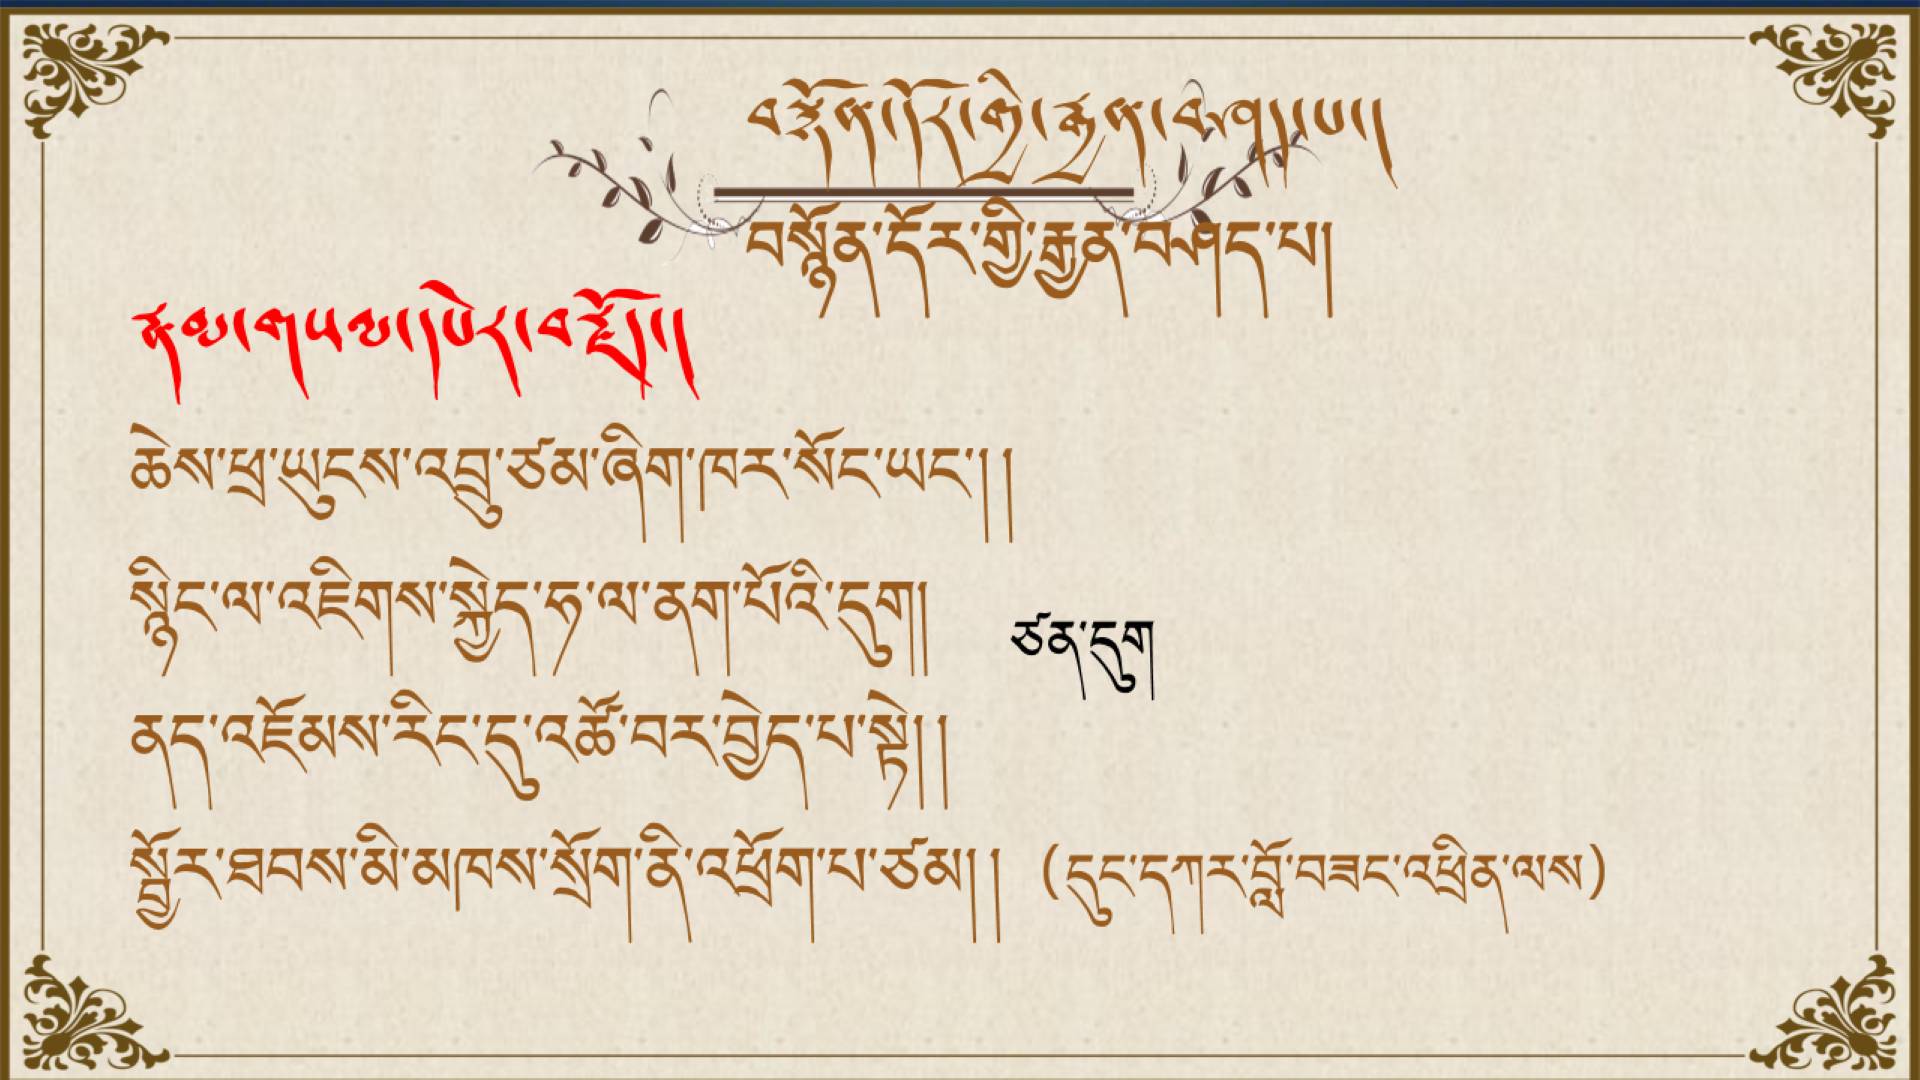 བསྙོན་དོར་གྱི་རྒྱན་བཤད་པ།
བསྙོན་དོར་གྱི་རྒྱན་བཤད་པ།
ཆེས་ཕྲ་ཡུངས་འབྲུ་ཙམ་ཞིག་ཁར་སོང་ཡང་།།
སྙིང་ལ་འཇིགས་སྐྱེད་ཧ་ལ་ནག་པོའི་དུག།
ཙན་དུག
ནད་འཇོམས་རིང་དུ་འཚོ་བར་བྱེད་པ་སྟེ།།
སྦྱོར་ཐབས་མི་མཁས་སྲོག་ནི་འཕྲོག་པ་ཙམ།། (དུང་དཀར་བློ་བཟང་འཕྲིན་ལས)